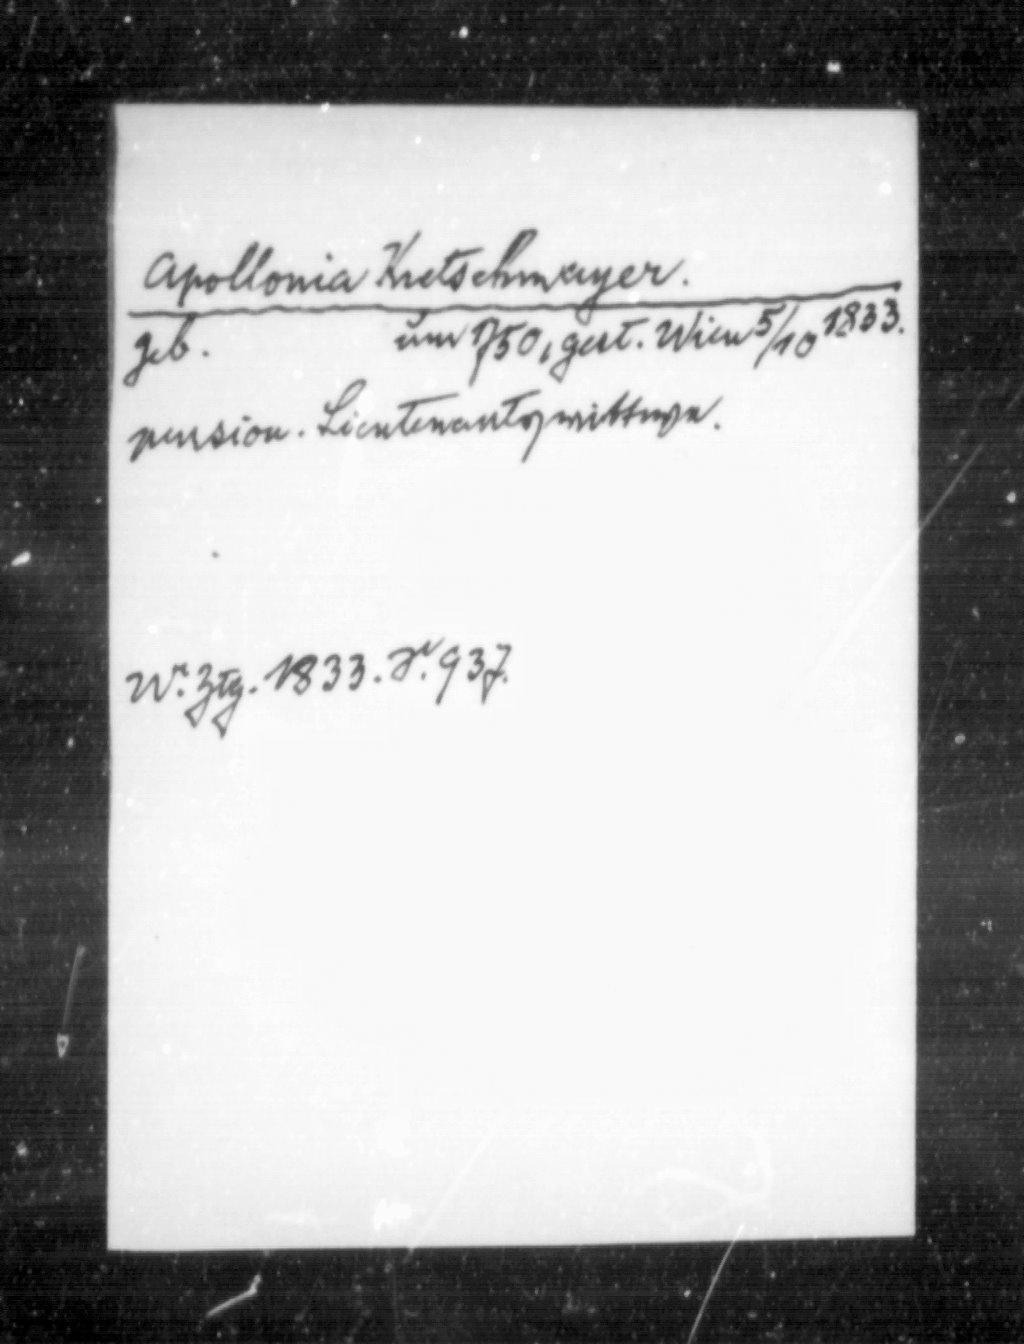 Apollonia Kretschmayer.
geb. um 1750, gest. Wien 5/10 1833.
pension. Lieutenantswittwe.
Wr. Ztg. 1833. S. 937.